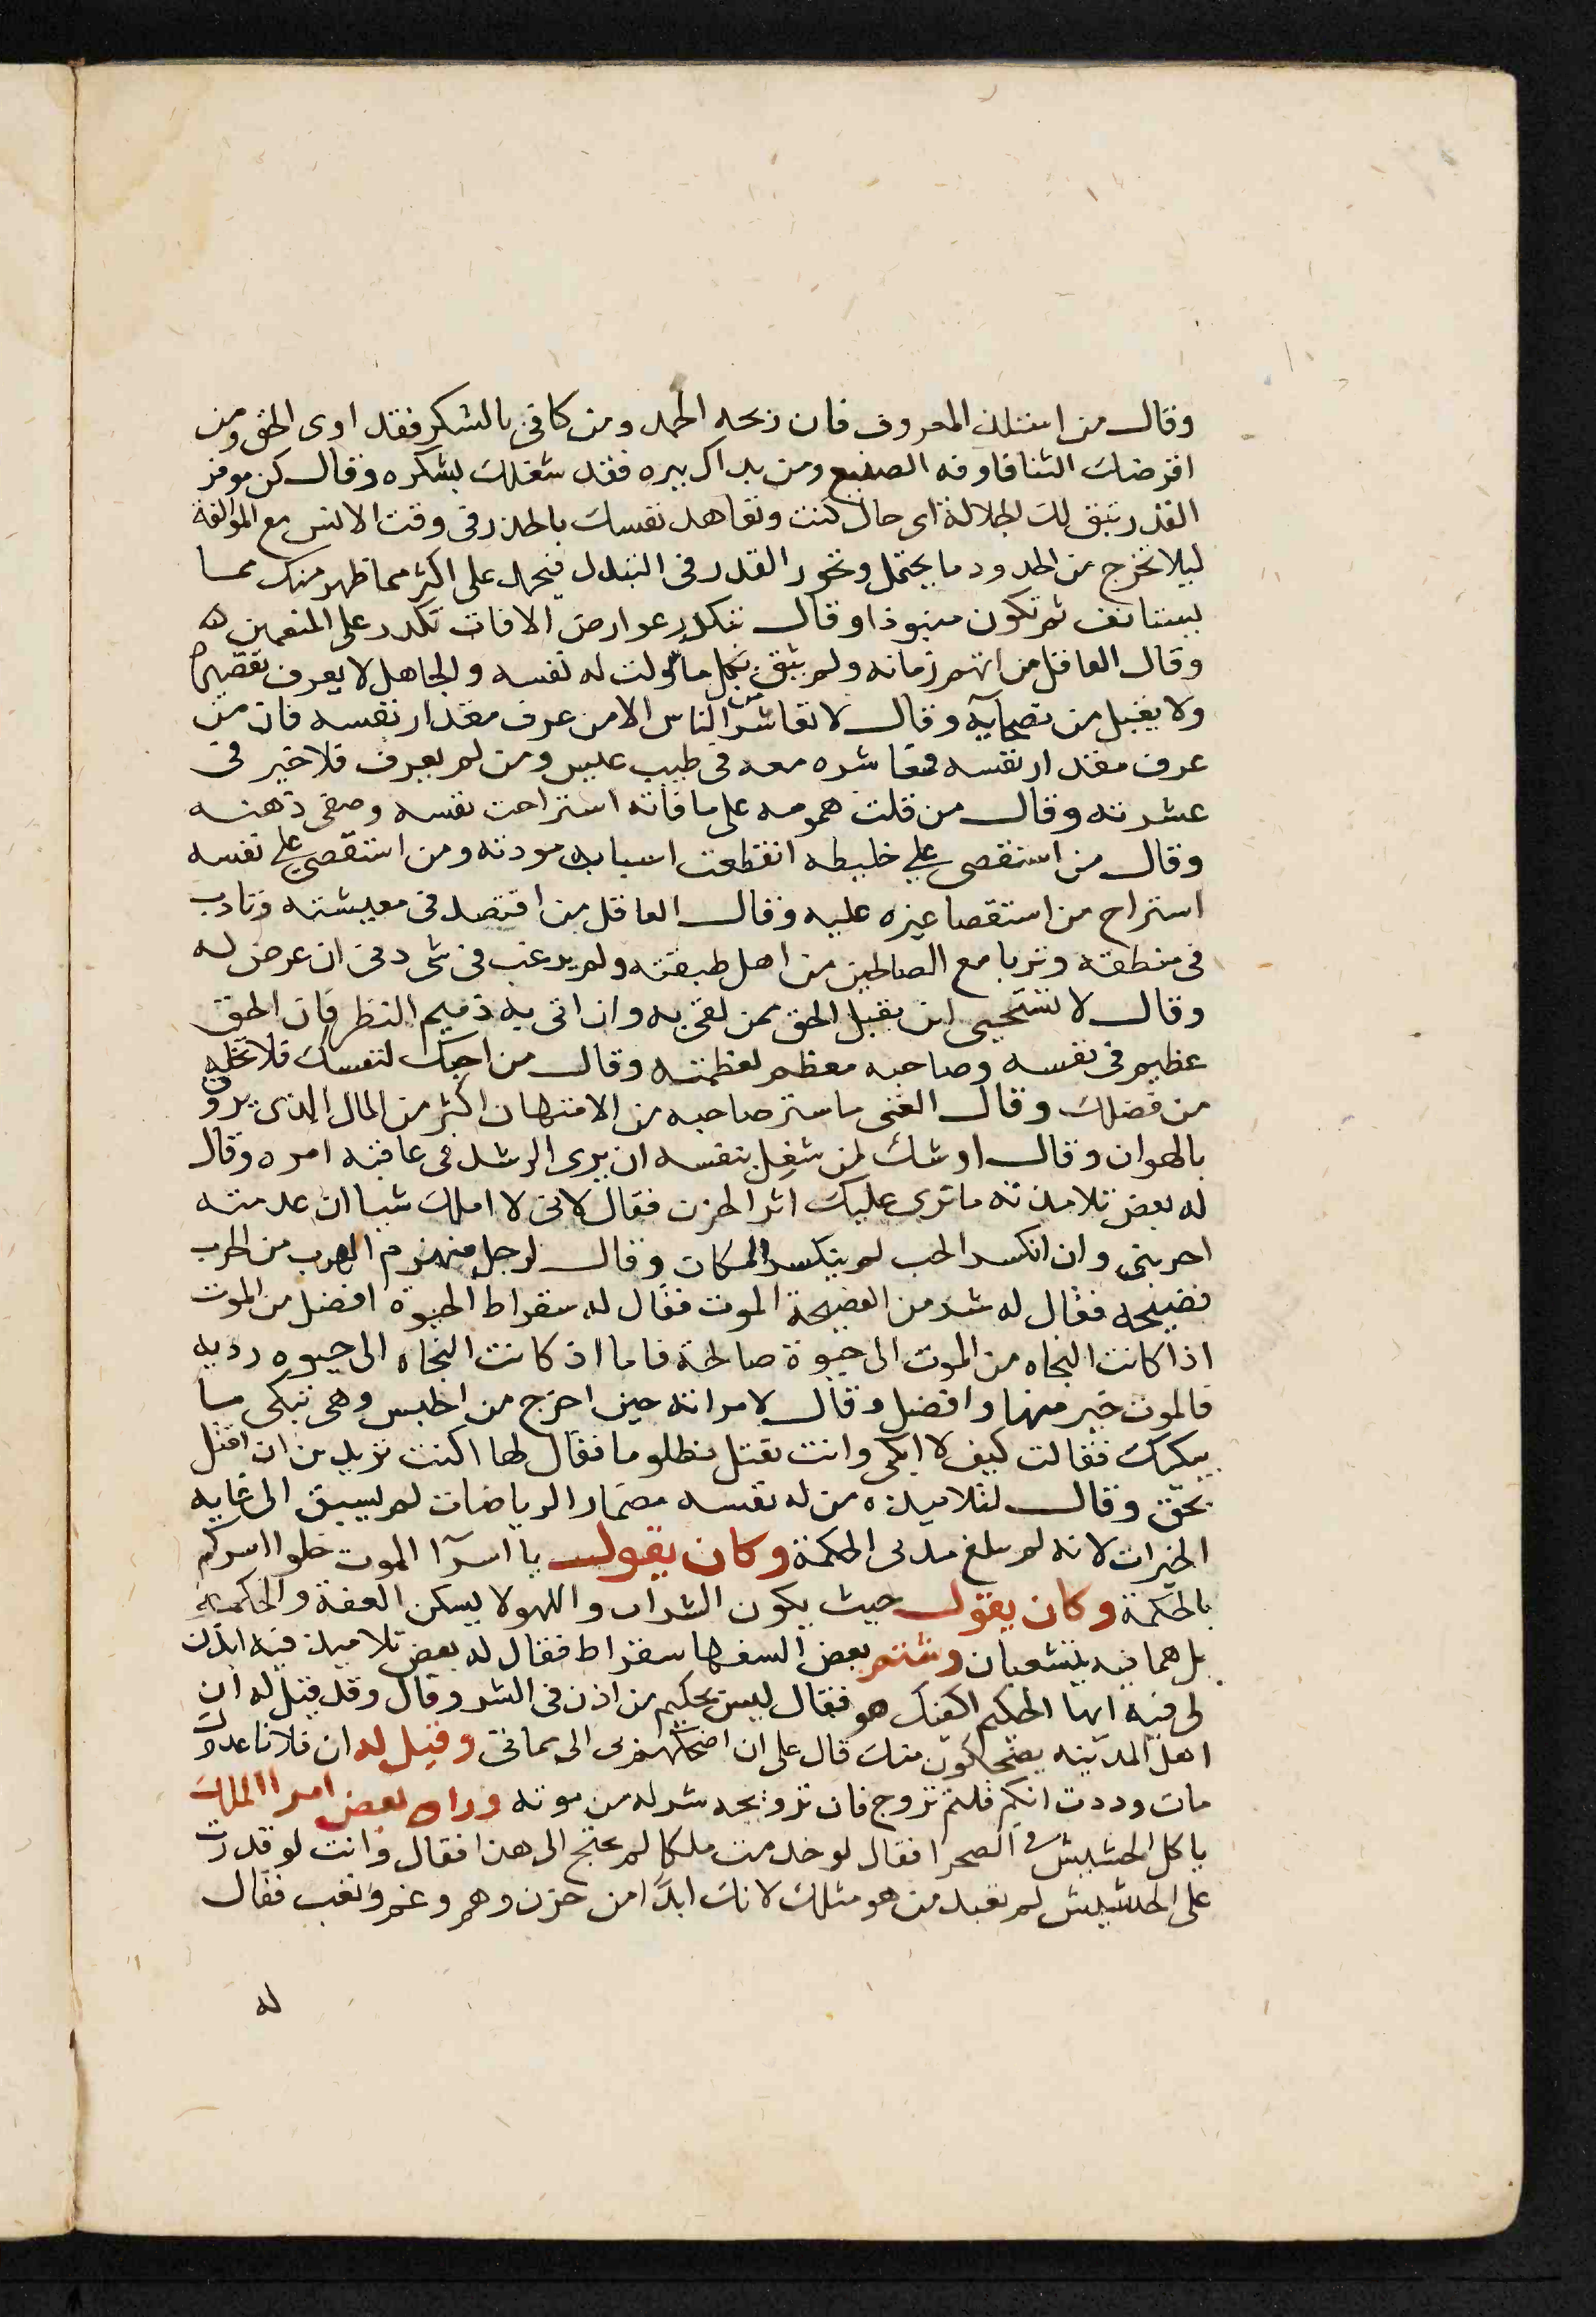 وقال من استلذ المعروف فان ربحه الحمد ومن كافى بالشكر فقد ادى الحق ومن
اقرضك الثنا فاوفه الصنيع ومن بداك ببره فقد شغلك بشكره وقال كن موفر
القدر تبق لك الجلالة اى حال كنت وتعاهد نفسك بالحذر فى وقت الانس مع المؤالفة
ليلا تخرج من الحدود ما يحتمل وتحور القدر فى التبذل فيحمل على اكثر مما ظهر منك مما
يستانف ثم تكون منبوذا وقال بتكدر عوارض الافات تكدر على المنعمين
وقال العاقل من اتهم زمانه ولم يثق بكل ما سولت له نفسه والجاهل لا يعرف تقصيره
ولا يقبل من نصحايه وقال لا تعاشر من الناس الا من عرف مقدار نفسه فان من
عرف مقدار نفسه فمعاشره معه فى طيب عيش ومن لم يعرف فلا خير فى
عشرته وقال من قلت همومه على ما فاته استراحت نفسه وصفى ذهنه
وقال من استقصى على خليطه انقطعت اسبابه مودته ومن استقصى على نفسه
استراح من استقصا غيره عليه وقال العاقل من اقتصد فى معيشته وتادب
فى منطقه وتربا مع الصالحين من اهل طبقته ولم يرغب فى شى دنى ان عرض له
وقال لا تستحيى ان تقبل الحق ممن لقى به وان اتى به ذميم النظر فان الحق
عظيم فى نفسه وصاحبه معظم لعظمته وقال من احبك لنفسك فلا تخله
من فضلك وقال الغنى ما ستر صاحبه من الامتهان اكثر من المال الذى يروق
بالهوان وقال اوشك لمن شغل بنفسه ان يرى الرشد فى عاقبه امره وقال
له بعض تلامذته ما نرى عليك اثر الحزن فقال لانى لا املك شيا ان عدمته
احزننى وان انكسر الحب لم ينكسر المكان وقال لرجل منهزم الهرب من الحرب
فضيحه فقال له شر من الفضيحة الموت فقال له سقراط الحيوة افضل من الموت
اذا كانت النجاه من الموت الى حيوة صالحة فاما اذ كانت النجاه الى حيوه رديه
فالموت خير منها وافضل وقال لامراته حين اخرج من الحبس وهى تبكى ما
يبكيك فقالت كيف لا ابكى وانت تقتل مظلوما فقال لها اكنت تريدين ان اقتل
بحق وقال لتلاميذه من له نفسه مضمار الرياضات لم يسبق الى غايه
الخيرات لانه لم يبلغ مدى الحكمة وكان يقول يا اسرآ الموت خلوا اسركم
بالحكمة وكان يقول حيث يكون الشراب واللهو لا يسكن العفة والحكمة
بل هما فيه يتشعبان وشتم بعض السفها سقراط فقال له بعض تلاميذه فيه ايذن
لى فيه ايها الحكيم اكفك هو فقال ليس بحكيم من اذن فى الشر وقال وقد قيل له ان
اهل المدينه يضحكون منك قال على ان اضحكهم
وقيل له ان فلانا عدوك
مات وددت انكم قلتم تزوج فان تزويجه شر له من موته وراه بعض امرا الملك
ياكل الحشيش فى الصحرا فقال لو خدمت ملكا لم تحتج الى هذا فقال وانت لو قدرت
على الحشيش لم تعبد من هو مثلك لانك ابدًا من حزن وهم وغم وتعب فقال
له